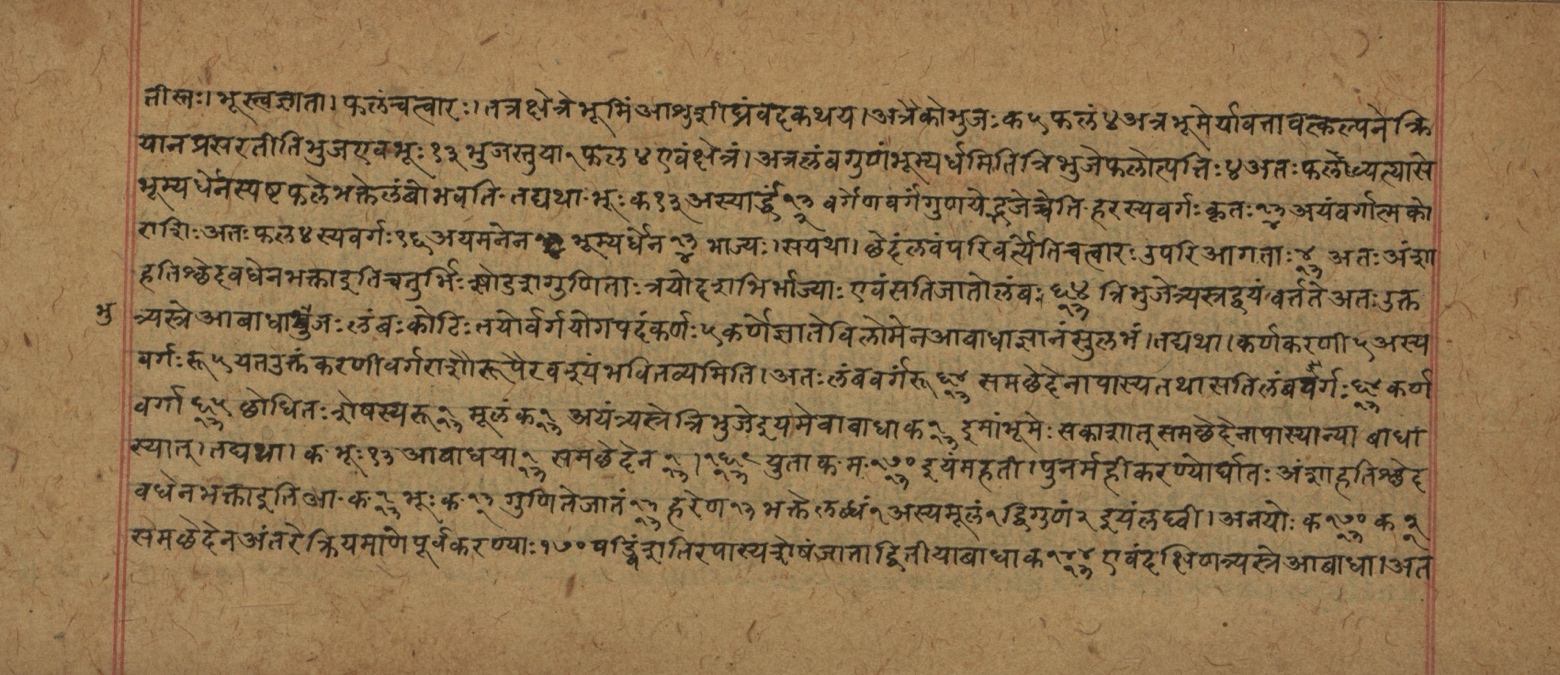 तीस्तः। भूस्त्वज्ञाता। फलंचत्वारः। तत्रक्षेत्रेभूमिंआशुशीघ्रंवदकथय। अत्रैकोभुजःक५फलं४अत्रभूमेर्यावत्तावत्कल्पनेक्रि
यानप्रसरतीतिभुजएवभूः१३भुजस्तुया१फल४एवंक्षेत्रं। अत्रलंबगुणंभूस्यर्धमितित्रिभुजेफलोत्पत्तिः४अतःफले
भूस्यर्धेनस्पष्टफलेभक्तेलंबोभवति-तद्यथा-भूःक१३अस्यार्द्धं१३ वर्गेणवर्गंगुणयेद्भजेच्चेति-हरस्यवर्गःकृतः१३अयंवर्गात्मको
राशिःअतःफल४स्यवर्गः१६अयमनेन भूस्यर्धेन१३ भाज्यः।सयथा। छेदंलवंपरिवर्त्येतिचत्वारःउपरिआगताः४ अतःअंशा
हतिश्छेदवधेनभक्ताइतिचतुर्भिःखोडशगुणिताःत्रयोदशभिर्भाज्याःएवंसतिजातोलंबः ६४ त्रिभुजेत्र्यस्त्रद्वयंवर्त्ततेअतःउक्त
भु
त्र्यस्त्रेआबाधाभुजःलंबःकोटिःतयोर्वर्गयोगपदंकर्णः५कर्णेज्ञातेविलोमेनआवाधाज्ञानंसुलभं।तद्यथा।कर्णकरणी५अस्य
वर्गःरू५यतउक्तंकरणीवर्गराशौरूपैरवश्यंभवितव्यमिति।अतःलंबवर्गंरू६४ समछेदेनापास्यतथासतिलंबवर्गः६४ कर्ण
वर्गा६५ छोधितःशेषस्यरू१ मूलंक१ अयंत्र्यस्त्रेत्रिभुजेइयमेवाबाधाक१ इमांभूमेःसकाशात्समछेदेनापास्यान्याबाधा
स्यात्।तद्यथा।क-भूः१३आवाधया१ समछेदेन १।१६९ युताक-मः१७० इयंमहती।पुनर्महीकरण्योर्घातःअंशाहतिश्छेद
वधेनभक्ताइतिआ-क-१ भूःक-१३ गुणितेजातं१३ हरेण१३ भक्तेलब्धं१अस्यमूलं१द्विगुणं२ इयंलघ्वी। अनयोःक१७० क२
समछेदेनअंतरेक्रियमाणेपूर्वकरण्याः१७०षड्विंशतिरपास्यशेषंजाताद्वितीयाबाधाक१४४ एवंदक्षिणत्र्यस्त्रेआबाधा।अत